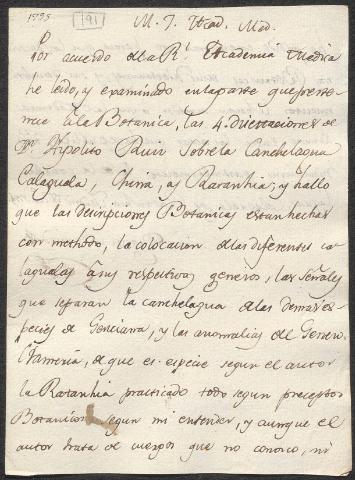 1795
[91]
M. I. Acad. Med.
Por acuerdo de la Rl. Academia Medica
he leido, y examinado en la parte que perte-
nece à la Botanica, las 4. disertaciones de
Dn. Hipolito Ruiz sobre la Canchelagua
Calaguala, China, y Ratanhia; y hallo
que las descripciones Botanicas estan hechas
con methodo, la colocacion de las diferentes ca-
lagualas à sus respectivos generos, las señales
que separan la canchelagua de las demas es-
pecies de Genciana, y las anomalias del Genero
Crameria, de que es especie segun el autor
la Ratanhia practicado todo segun preceptos
Botanicos segun mi entender, y aunque el
autor trata de cuerpos que no conosco, ni